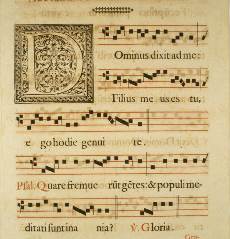 Dominus dixit ad me:
Filius meus es tu,
ego hodie genui te.
Psal. Quare fremuerũt gẽtes: & populi me-
ditati sunt inania? ℣. Gloria.